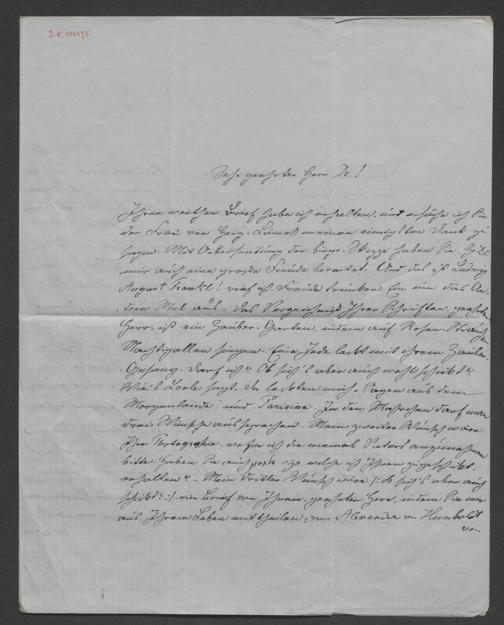 J.N. 104175
Sehr geehrter Herr Dr.!
Ihren werthen Brief habe ich erhalten, und ersuche ich Sie
der Frau von meinen innigsten Dank zu
sagen. Mit Übersendung der haben Sie
mir auch eine große Freude bereitet. Und das ist Ludwig
August Frankl! rief ich Freude trunken Ein um das An-
dere Mal aus. Das Verzeichniß Ihrer Schriften, geehrter
Herr, ist ein Zauber-Garten, indem auf Rosen
Nachtigallen singen. Eine Jede lockt mit ihrem Zauber-
Gesang. Darf ich? Ob sich's aber auch wohl schickt?
Wie's Lorle sagt. Es lockten mich. Sagen aus dem
Morgenlande und Parisina. In den Mährchen darf man
drei Wünsche aussprechen. Mein zweiter Wunsch wäre
Ihre Photographie, wofür ich die meines Vaters anzunehmen
bitte. Haben Sie auch welche ich Ihnen zugeschickt,
erhalten? Mein dritter Wunsch wäre /: ob sich's aber auch
schickt? :/ ein Brief von Ihnen, geehrter Herr, indem Sie mir
aus Ihrem Leben mittheilen, von Alexander v. Humboldt